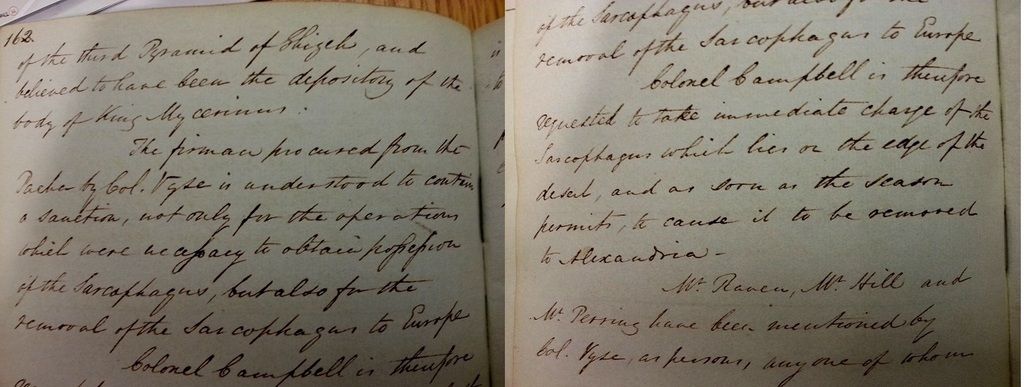 162
of the third Pyramid of Ghizeh, and
believed to have been the depository of the
body of King Mycerinus.
The firman procured from the
Pacha by Col. Vyse is understood to contain
a sanction, not only for the operations
which were necessary to obtain possession
of the Sarcophagus, but also for the
removal of the Sarcophagus to Europe
Colonel Campbell is therefore
of the Sarcophagus, but also for the
removal of the Sarcophagus to Europe
Colonel Campbell is therefore
requested to take immediate charge of the
Sarcophagus which lies on the edge of the
desert, and as soon as the season
permits, to cause it to be removed
to Alexandria -
Mr. Raven, Mr. Hill and
Mr. Perring have been mentioned by
Col. Vyse, as persons, any one of whom